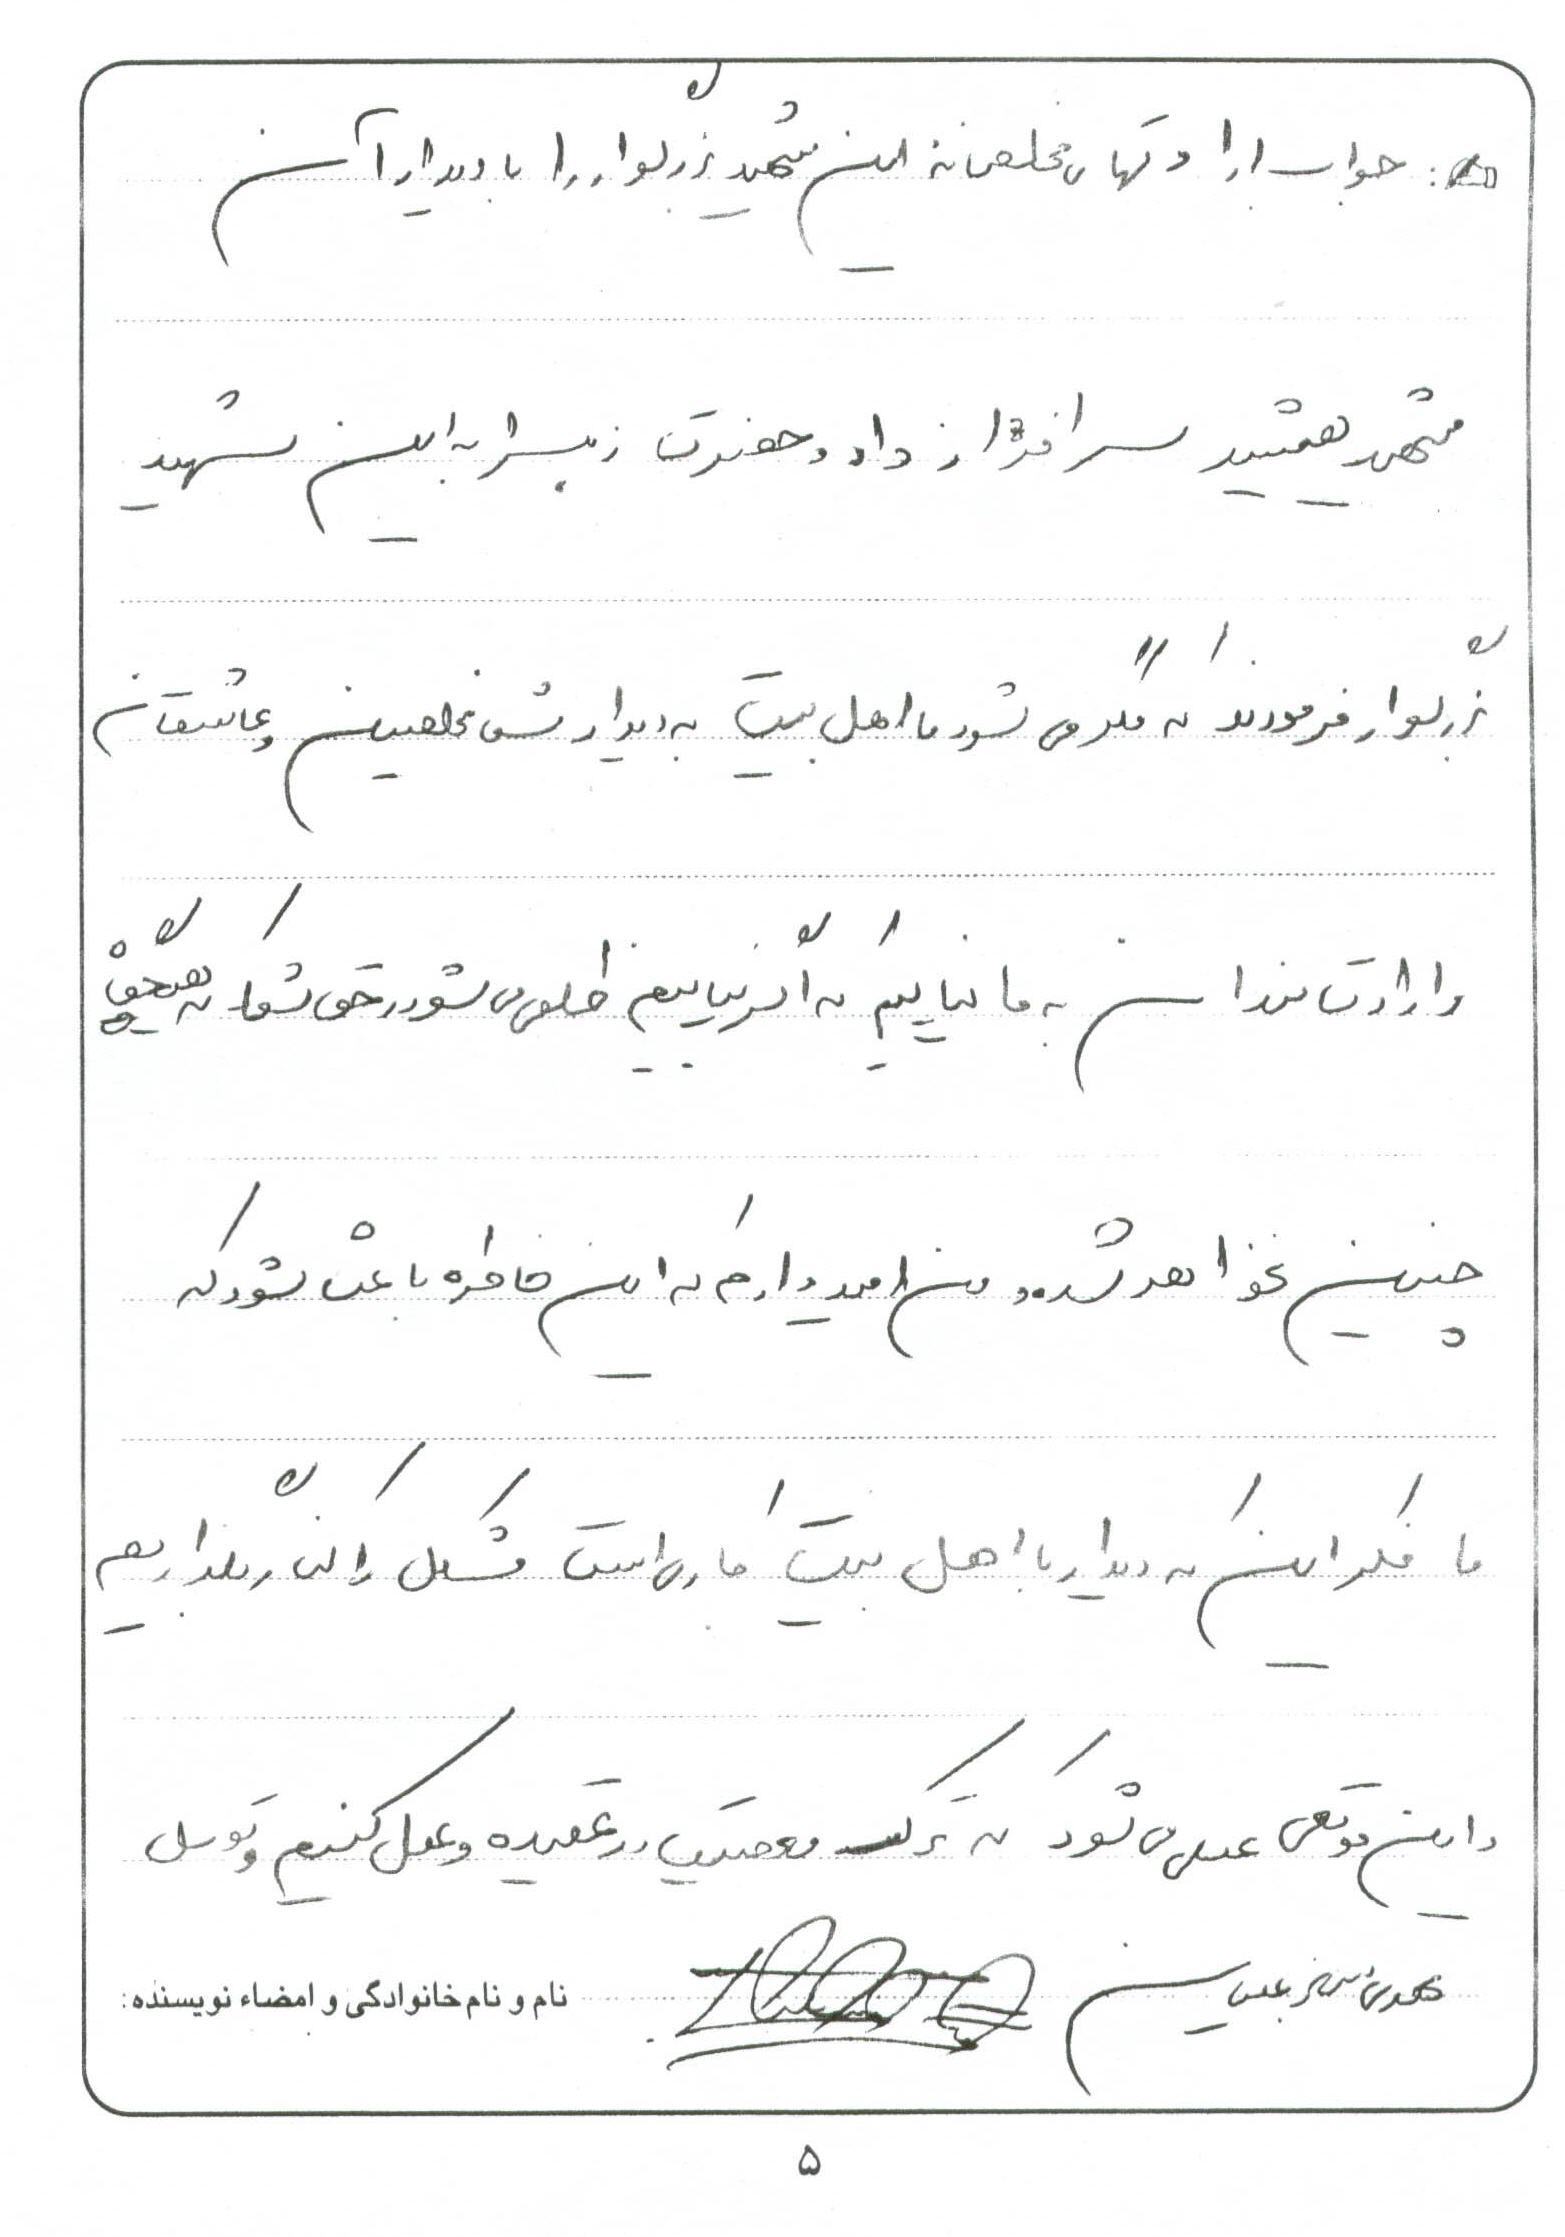 جواب ارادتهای مخلصانه این شهید بزرگوار را با دیدار آن
شهید همیشه سرافراز داد و حضرت زهرا به این شهید
بزرگوار فرمودند که مگر می شود ما اهل بیت به دیدار شما مخلصین و عاشقان
و ارادتمندان به ما نیاییم که اگر نیاییم ظلم می شود در حق شما که هیچ گاه
چنین نخواهد شد و من امید دارم که این خاطره باعث شود که
ما فکر این که دیدار با اهل بیت کاری است مشکل را کنار بگذاریم
و این موقعی عملی می شود که ترک معصیت در عقیده و عمل کنیم و توسل
نام و نام خانوادگی و امضاء نویسنده:
۵